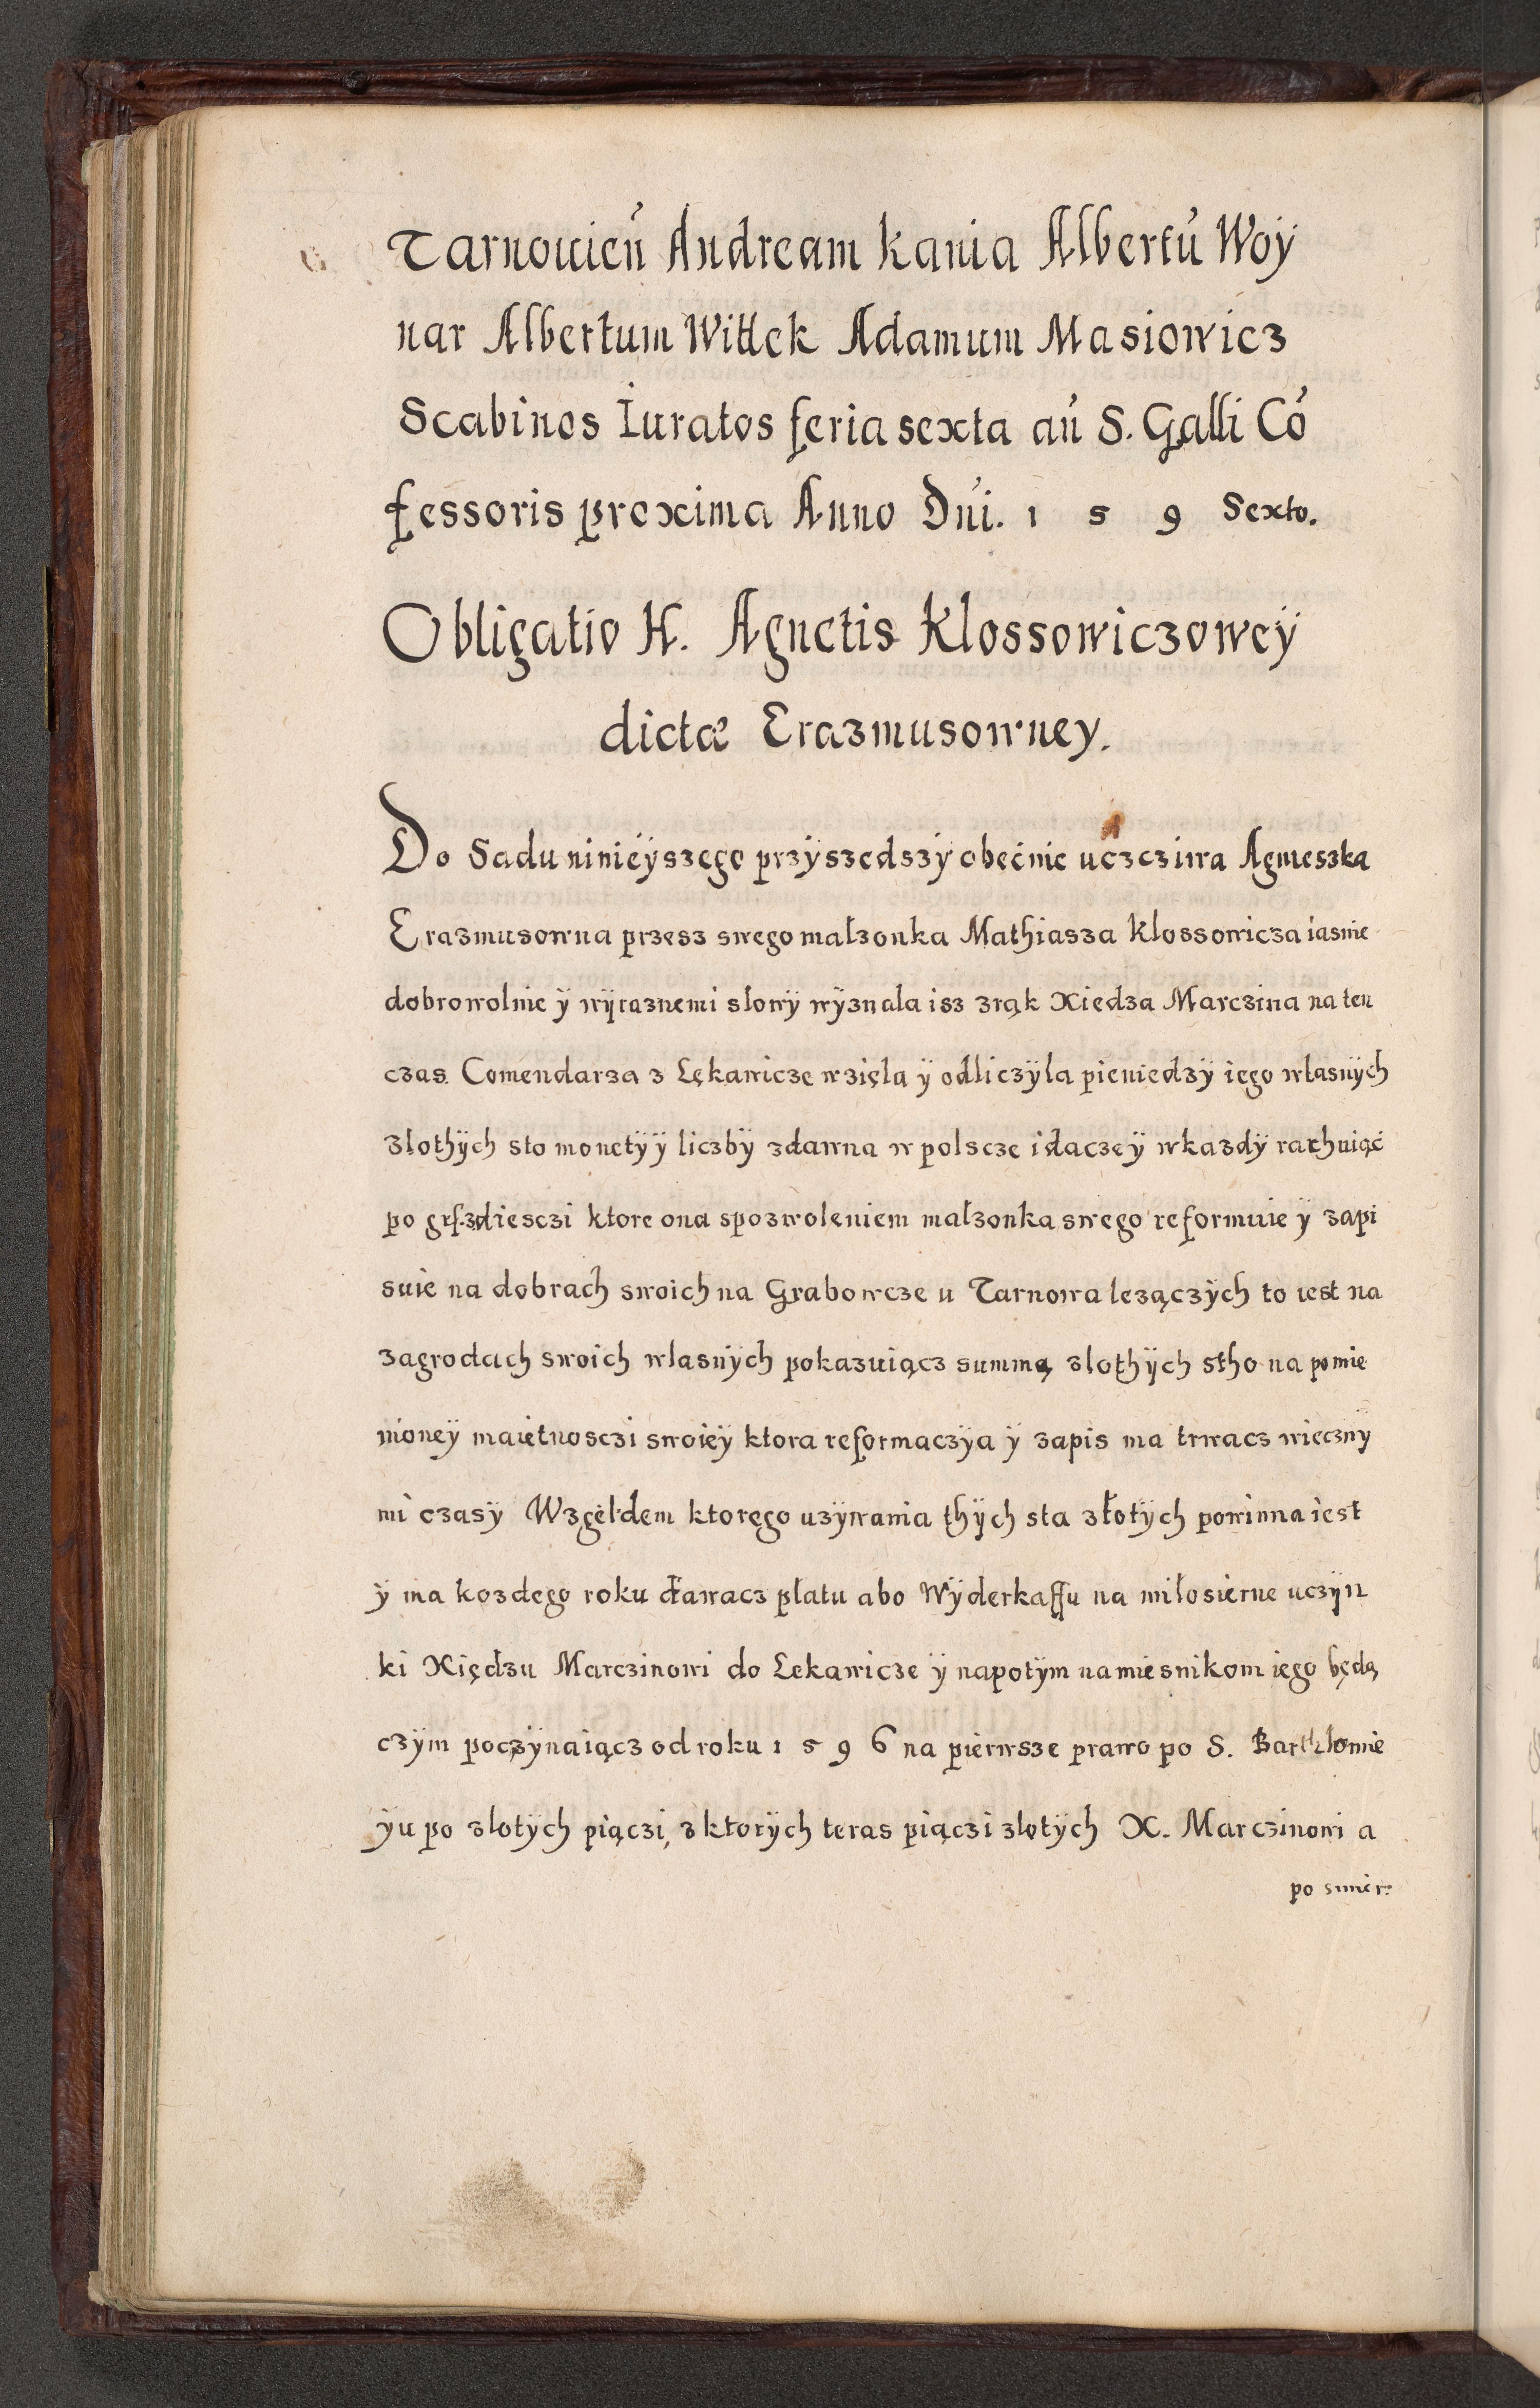 Tarnouień Andream Kania Albertú Woÿ
nar Albertum Wittek Adamum Masiowicz
Scabinos Iuratos feria sexta añ S. Galli Có
fessoris proxima Anno Dńi. 1 5 9 Sexto.
Obligatio H. Agnetis Klossowiczoweÿ
dictæ Erazmusowney.
Do Sadu ninieÿszego przÿszedszÿ obećnie uczcziwa Agnieszka
Erazmusowna przesz swego malzonka Mathiasza Klossowicza iasnie
dobrowolnie ÿ wÿraznemi slowÿ wÿznala isz zrąk Xiedza Marczina na ten
czas. Comendarza z Lękawicze wzięla ÿ odliczÿla pieniedzÿ iego wlasnÿch
Zlothÿch sto monetÿ ÿ liczbÿ zdawna w polscze idaczeÿ wkazdÿ rathuiąć
po grs. zdiesczi ktore ona spozwoleniem malzonka swego reformuie ÿ zapi
suie na dobrach swoich na Grabowcze u Tarnowa lezączÿch to iest na
zagrodach swoich wlasnÿch pokazuiącz summą zlothÿch stho na pomie
nioneÿ maietnosczi swoieÿ ktora reformaczÿa ÿ zapis ma trwacz wiecznÿ
mi czasÿ Wzgełdem ktorego uzÿwania thÿch sta złotÿch powinna iest
ÿ ma kozdego roku dawacz płatu abo Wÿderkaffu na miłosierne uczÿn
ki Xiędzu Marczinowi do Lekawicze ÿ napotÿm namiesnikom iego będą
czÿm poczÿnaiącz od roku 1 5 9 6 na pierwsze prawo po S. Barthlomie
ÿu po zlotÿch piączi, z ktorÿch teras piączi zlotÿch X. Marczinowi a
po smier: